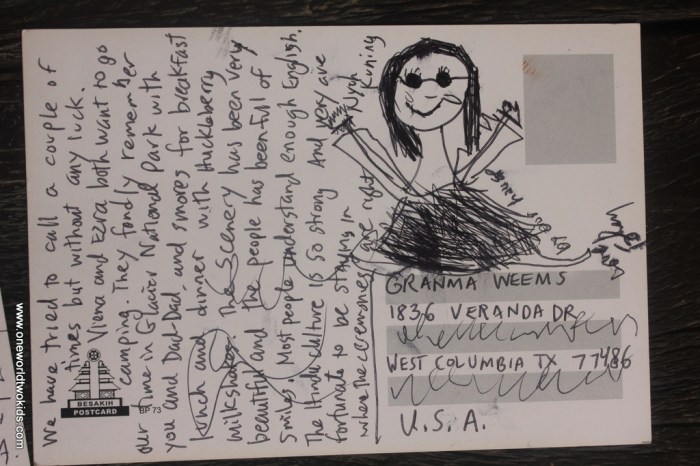 We have tried to call a couple of
times but without any luck.
Viena and Ezra both want to go
camping. They fondly remember
our time in Glacier National Park with
you and Dad-Dad and smores for breakfast
lunch and dinner with Huckleberry
milkshakes. The scenery has been very
beautiful and the people has been full of
smiles. Most people understand enough English.
The Hindu culture is so strong and very are
fortunate to be staying in
where the ceremonies are right
BESAKIH
POSTCARD
BP 73
GRANMA WEEMS
1836 VERANDA DR
WEST COLUMBIA TX 77486
U.S.A.
www.oneworldtwokids.com